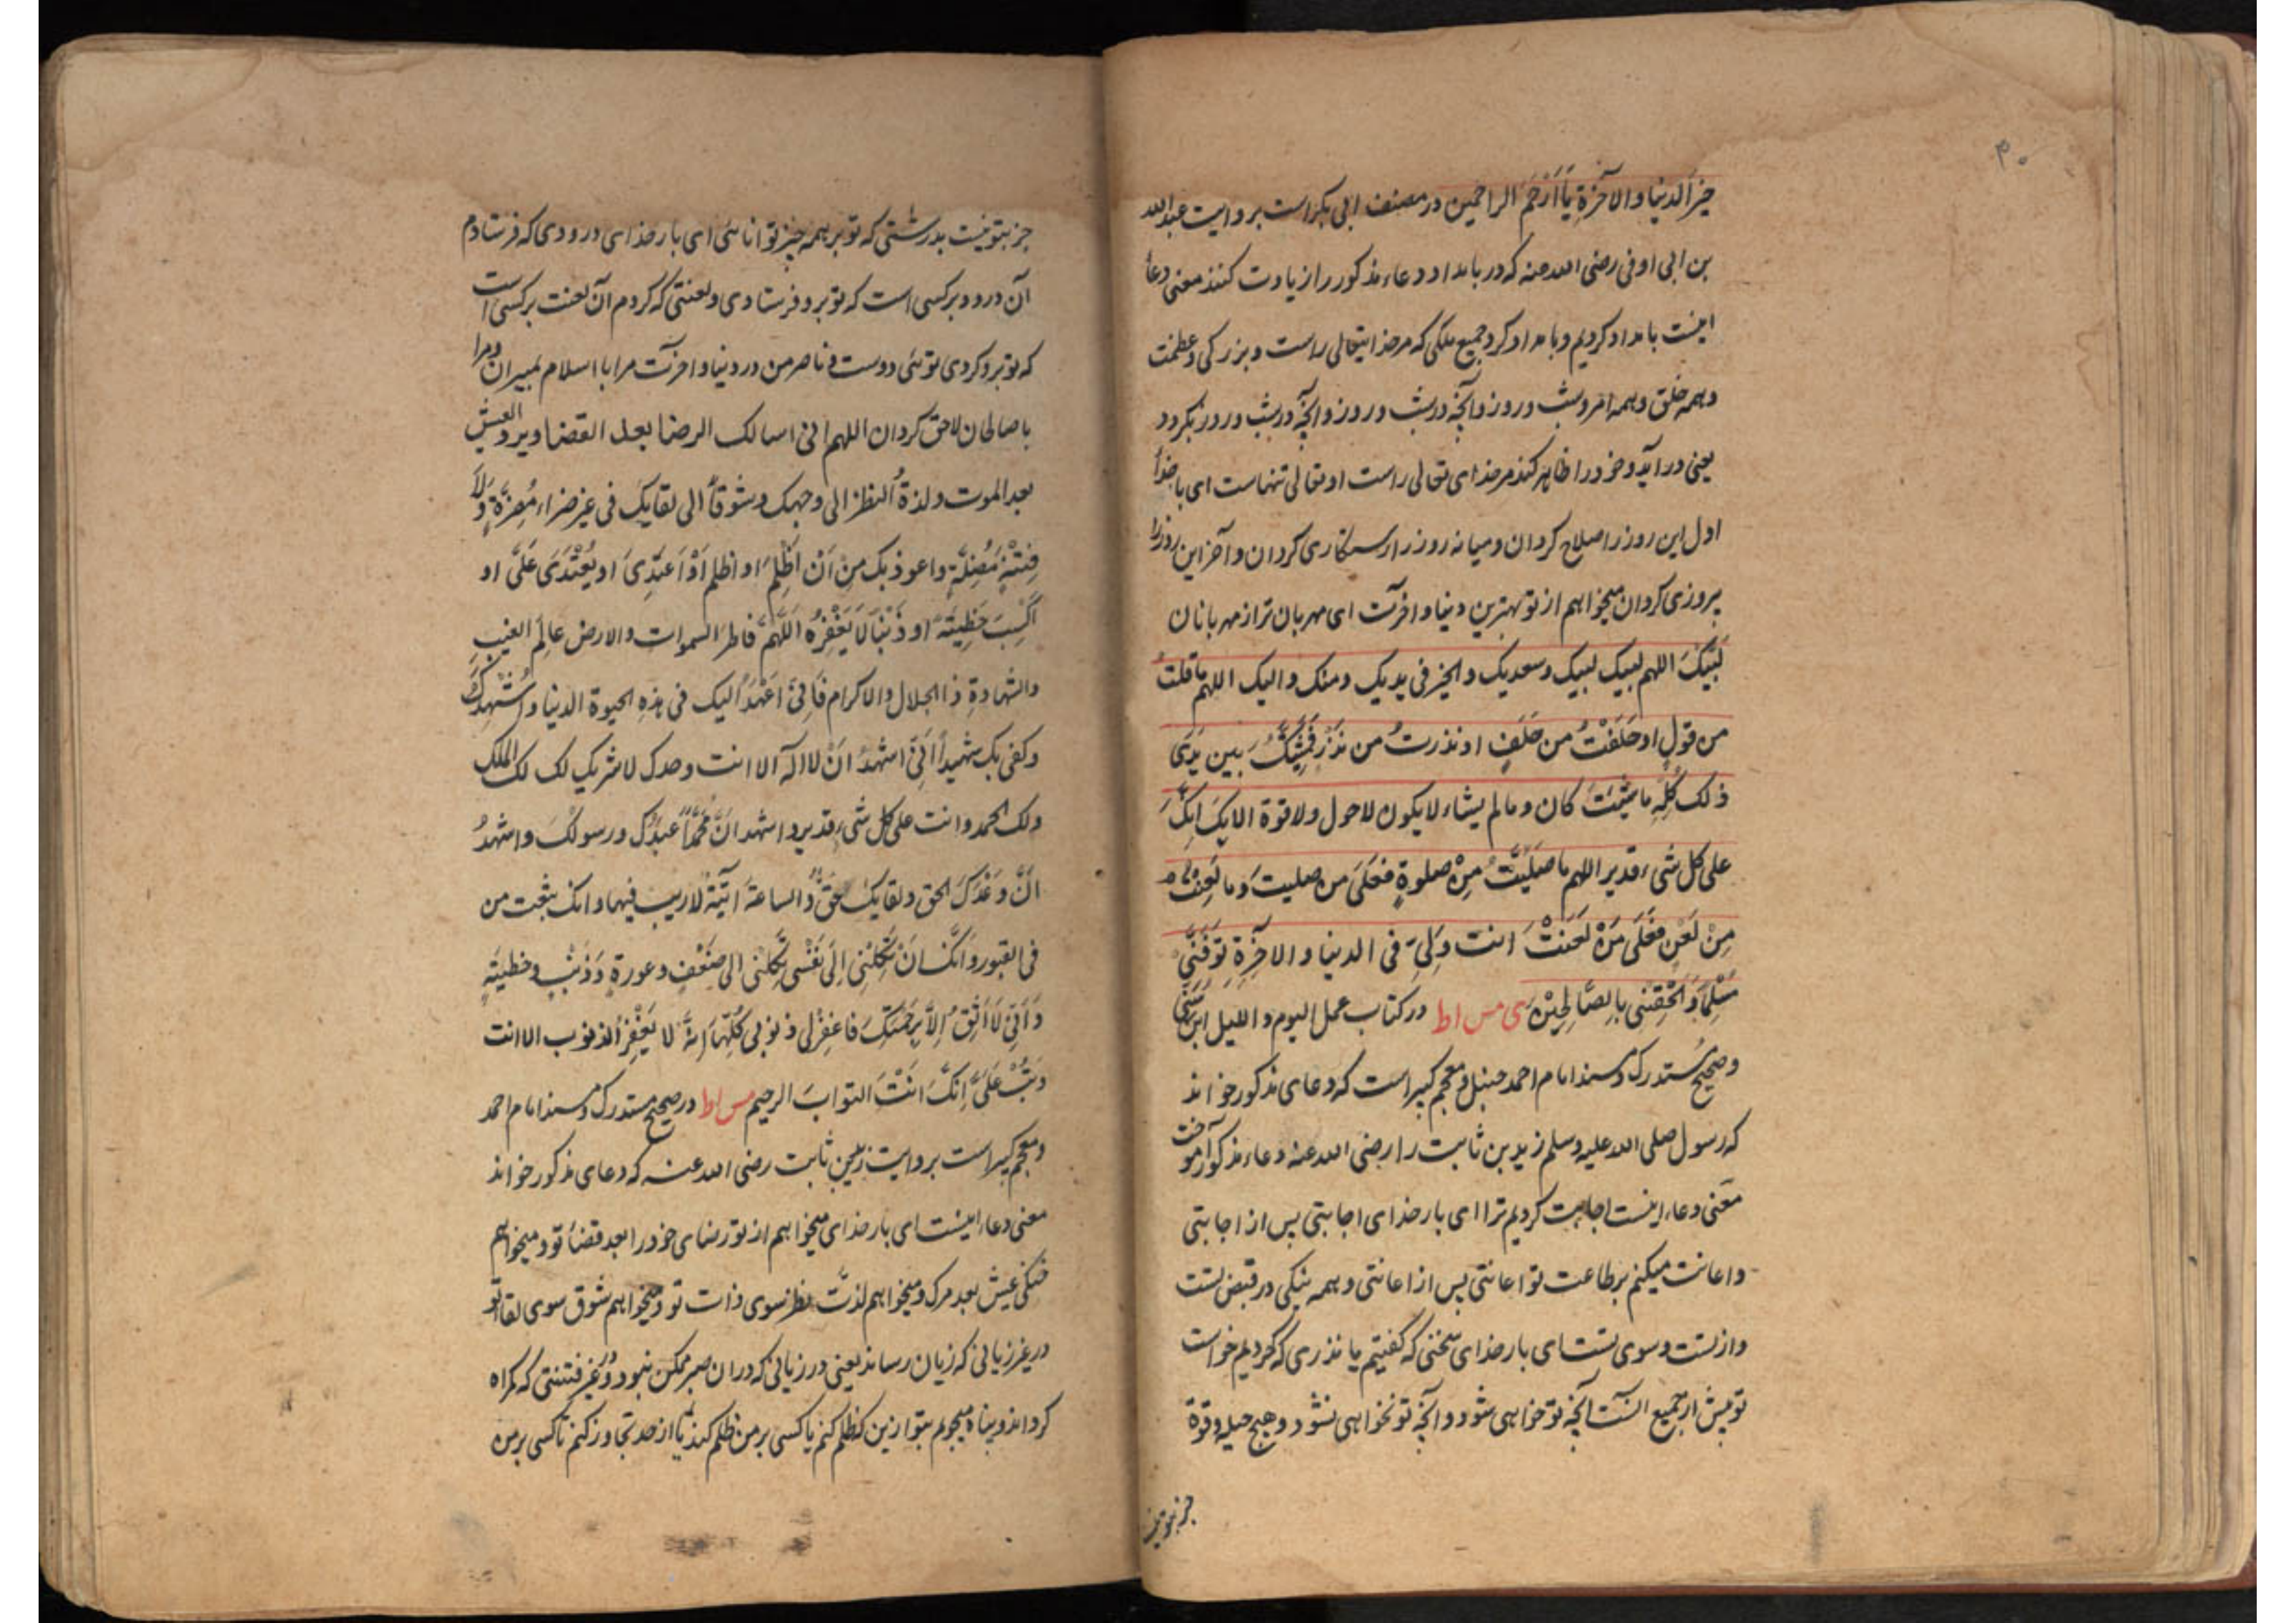 ۳۰
خیر الدنیا والآخرة یا أَرْحَمَ الراحمین در مصنف ابی بکر است بروایت عبدالله
بن ابی اوفی رضی الله عنه که در بامداد دعاء مذکور را زیادت کنند معنی دعا
اینست بامداد کردیم و بامداد کرد جمیع ملکی که مر خدایتعالی راست و بزرکی و عظمت
وهمه خلق وهمه امر وشب وروز وآنچه در شب وروز وآنچه در شب وروز بکردد
یعنی درآید وخود را ظاهر کند مر خدای تعالی راست او تعالی تنهاست ای بار خدا
اول این روز را صلاح کردان ومیانه روز را رستکاری کردان وآخر این روز را
پیروزی کردان میخواهم از تو بهترین دنیا وآخرت ای مهربان تر از مهربانان
لَبَّیْکَ اللهم لبیک لبیک وسعدیک والخیر فی یدیک ومنک والیک اللهم ما قلتُ
من قولٍ او حَلَفْتُ من حَلَفٍ او نذرتُ من نَذْرٍ فَمَشِیَّتُکَ بین یَدَیْ
ذلک کُلِّهِ ما شِئْتَ کان وما لم یشاء لا یکون لا حول ولا قوة الا بِکَ اِنَّکَ
علی کل شیء قدیر اللهم ما صَلَّیْتُ مِنْ صلوةٍ فعَلَی من صلیتَ وما لَعَنْتُ
مِنْ لَعْنٍ فَعَلَی مَنْ لَعَنْتَ انت وَلِیِّ فی الدنیا والآخِرَةِ تَوَفَّنِی
مُسْلِمًا وَاَلْحِقْنِی بِالصَّالِحِیْنَ ی مس اط در کتاب عمل الیوم واللیل ابن سُنِّی
وصحیح مُستدرک ومسند امام احمد حنبل ومعجم کبیر است که دعای مذکور خواند
که رسول صلی الله علیه وسلم زید بن ثابت را رضی الله عنه دعاء مذکور آموخت
معنی دعاء اینست اجابت کردیم ترا ای بار خدای اجابتی پس از اجابتی
واعانت میکنم بر طاعت تو اعانتی پس از اعانتی وهمه نیکی در قبض تست
واز تست وسوی تست ای بار خدای سخنی که کفتیم یا نذری که کردیم خواست
تو پیش از جمیع آنست آنچه تو خواهی شود وآنچه تو نخواهی نشود وهیچ حیله وقوة
جز بتو نیست
جز بتو نیست بدرستی که تو بر همه چیز توانائی ای بار خدای درودی که فرستادم
آن درود بر کسی است که تو برو فرستادی ولعنتی که کردم آن لعنت بر کسی است
که تو برو کردی توئی دوست وناصر من در دنیا وآخرت مرا با اسلام بمیران ومرا
با صالحان لاحق کردان اللهم انی اسالک الرضا بعد القضا وبرد العیش
بعد الموت ولذةُ النظر الی وجهک وشوقاً الی لقایک فی غیر ضراء مُضِرَّةٍ ولَا
فِتْنَةٍ مُضِلَّةٍ واعوذ بک مِنْ اَنْ اَظْلِمَ او اظلم اَوْ اَعْتَدِیَ او یُعْتَدَی عَلَیَّ او
اَکْسِبَ خَطِیْئَةً او ذَنْبًا لَا یَغْفِرُهُ اَللَّهُمَّ فاطر السموات والارض عالِمَ الغیبِ
والشهادةِ ذا الجلال والاکرام فَاِنِّی اَعْهَدُ اِلیک فی هذهِ الحیوة الدنیا واُشْهِدُکَ
وکفی بک شهیداً اِنِّی اشهدُ اَنْ لا اله الا انت وحدک لا شریک لک لک الملک
ولک الحمد وانت علی کل شیء قدیر واشهد انَّ مُحَمَّداً عبدُک ورسولک واشهدُ
انَّ وَعْدَکَ الحق ولقایک حقٌّ والساعةَ آتیَةٌ لا ریب فیها وانک تبعث من
فی القبور وانَّکَ اِنْ تَکِلْنِی اِلَی نَفْسِی تَکِلْنِی الی ضَعْفٍ وعورةٍ وَذَنْبٍ وخطیئَةٍ
وَاَنِّی لَا اَثِقُ اِلَّا بِرَحْمَتِکَ فاغفِرْلی ذنوبی کُلَّهَا اِنَّهُ لا یَغْفِرُ الذنوب الا انت
وَتُبْ عَلَیَّ اِنَّکَ اَنْتَ التوابَ الرحیم مس اط در صحیح مستدرک ومسند امام احمد
ومعجم کبیر است بروایت زید بن ثابت رضی الله عنه که دعای مذکور خواند
معنی دعاء اینست ای بار خدای میخواهم از تو رضای خود را بعد قضاء تو ومیخواهم
خنکی عیش بعد مرک ومیخواهم لذّت نظر سوی ذات تو ومیخواهم شوق سوی لقاء تو
در غیر زیانی که زیان رساند یعنی در زیانی که در ان صبر ممکن نبود ودر غیر فتنتی که کمراه
کرداند وپناه میجویم بتو ازین که ظلم کنم یا کسی بر من ظلم کند یا از حد تجاوز کنم یا کسی بر من